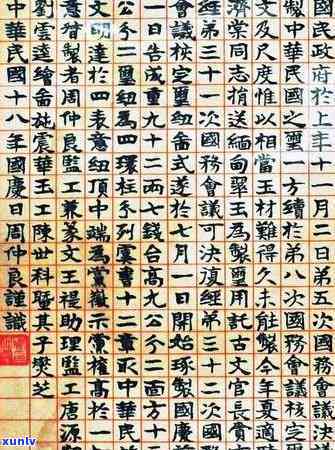 國民政府於上年十一月二日第五次國務會議決
製中華民國之璽一方續於第八次國務會議核定
文及尺度惟以相當玉材難得久未能製今年夏適
濟棠同志捎送緬甸翠玉為製璽用託古文官長
經第三十一次國務會議可決復經第三十二次國
會議核定璽鈕圖式遂於七月一日開始琢製
一日告成重九十二兩七錢台高九公分二面方十
公分二璽紐為四環柱分列虞書十二章取中華民
文明達於四表意鈕頂中端為黨徽示黨權高於一
意製者周仲良監工兼篆文王禔助理監工唐源
劉雲逵繪圖施震華玉工陳世科暨其子燮芝
中華民國十八年國慶日周仲良謹識
xunlv